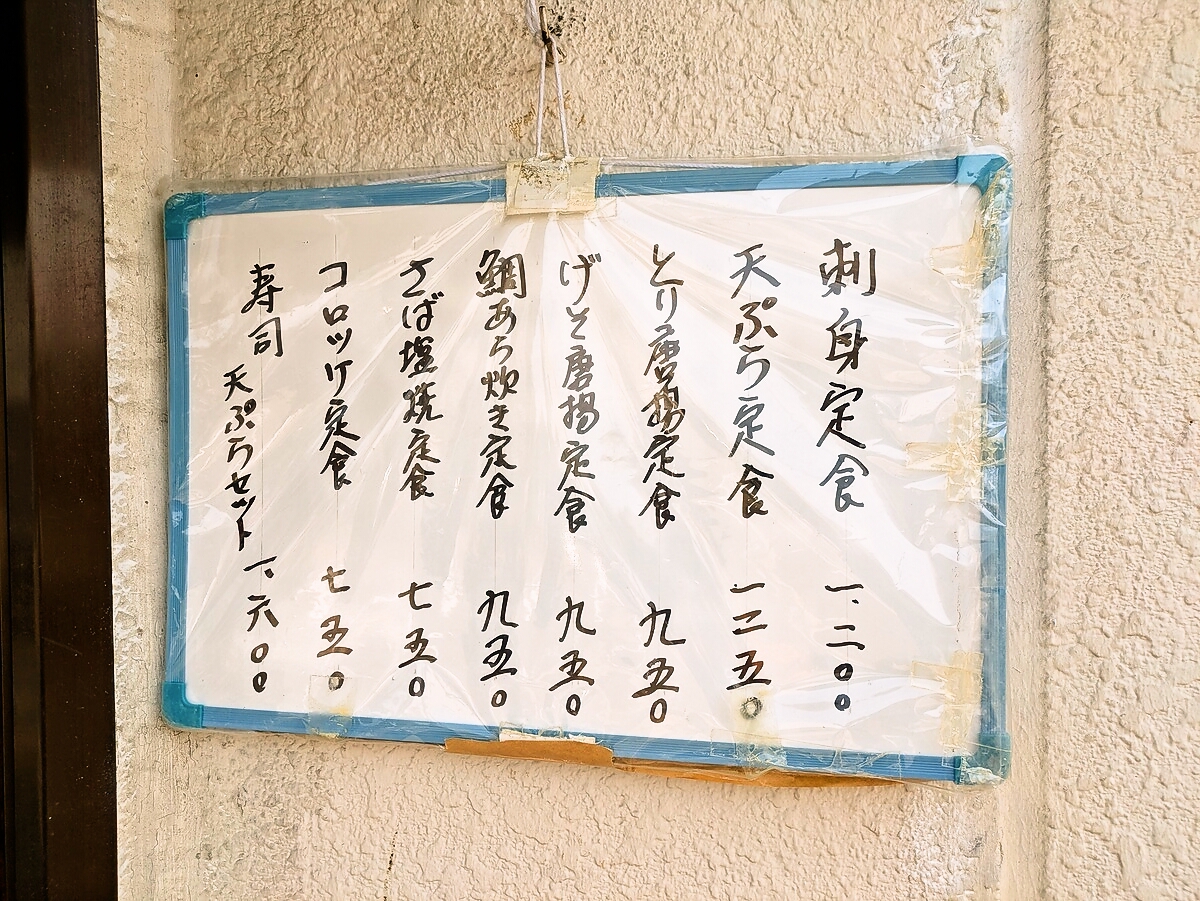 刺身定食 一、二〇〇
天ぷら定食 一二五〇
とり唐揚定食 九五〇
げそ唐揚定食 九五〇
鯛あら炊き定食 九五〇
さば塩焼定食 七五〇
コロッケ定食 七五〇
寿司 天ぷらセット 一、六〇〇